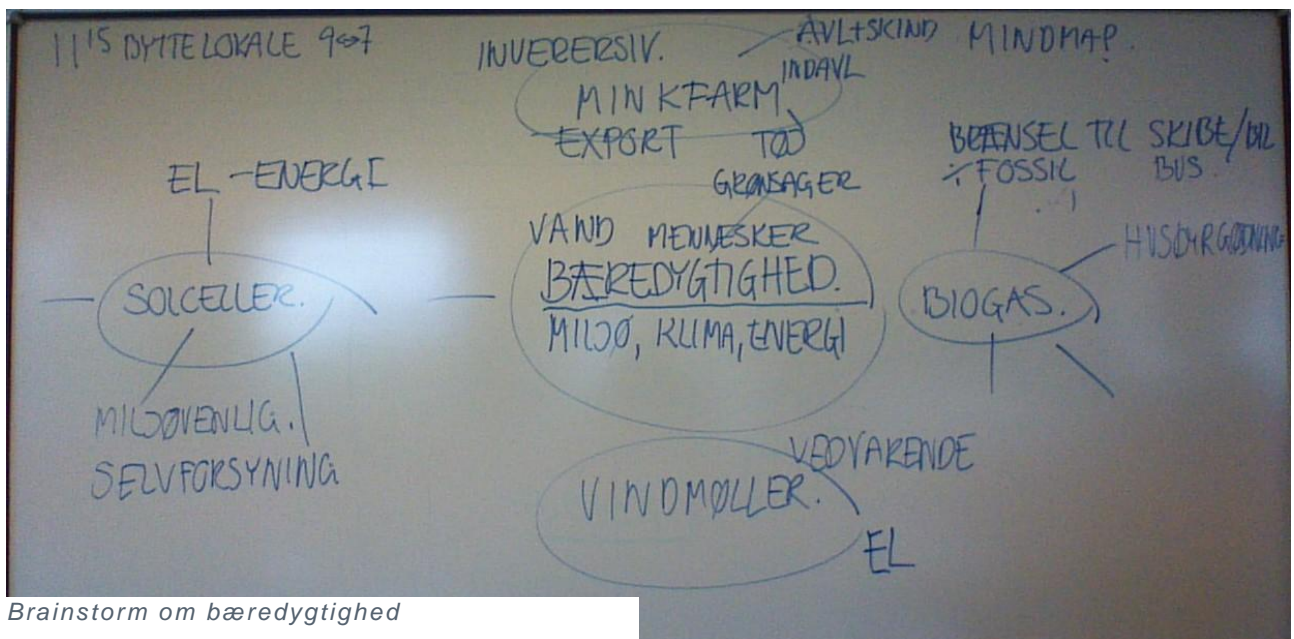 11¹⁵ BYTTELOKALE 9⇔7
INVERERSIV.
AVL+SKIND
MINDMAP.
INDAVL
MINKFARM
EXPORT
TØJ
EL - ENERGI
GRØNSAGER
BRÆNSEL TIL SKIBE/BIL
÷ FOSSIL
BUS
VAND MENNESKER
BÆREDYGTIGHED.
MILJØ, KLIMA, ENERGI
SOLCELLER.
BIOGAS.
HUSDYRGØDNING
MILJØVENLIG.
SELVFORSYNING
VEDVARENDE
VINDMØLLER.
EL
Brainstorm om bæredygtighed